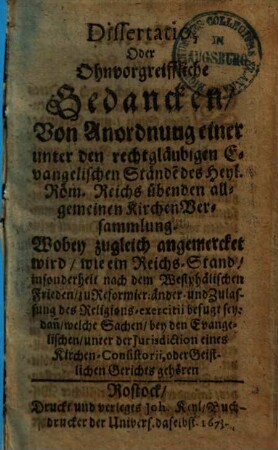 Dissertatio
Oder
Ohnvorgreiffliche
Gedancken/
Von Anordnung einer
unter den rechtgläubigen E-
vangelischen Ständẽ des Heyl.
Röm. Reichs übenden all-
gemeinen Kirchen Ver-
sammlung.
Wobey zugleich angemercket
wird / wie ein Reichs-Stand /
insonderheit nach dem Westphälischen
Frieden / zu Reformier: änder- und Zulas-
sung des Religions-exercitii befugt sey:
dan / welche Sachen / bey den Evange-
lischen / unter der Jurisdiction eines
Kirchen-Consistorii, oder Geist-
lichen Gerichts gehören
Rostock /
Druckt und verlegts Joh. Keyl / Buch-
drucker der Univers. daselbst. 1673.
COLLEGII
IN
AUGSBURG